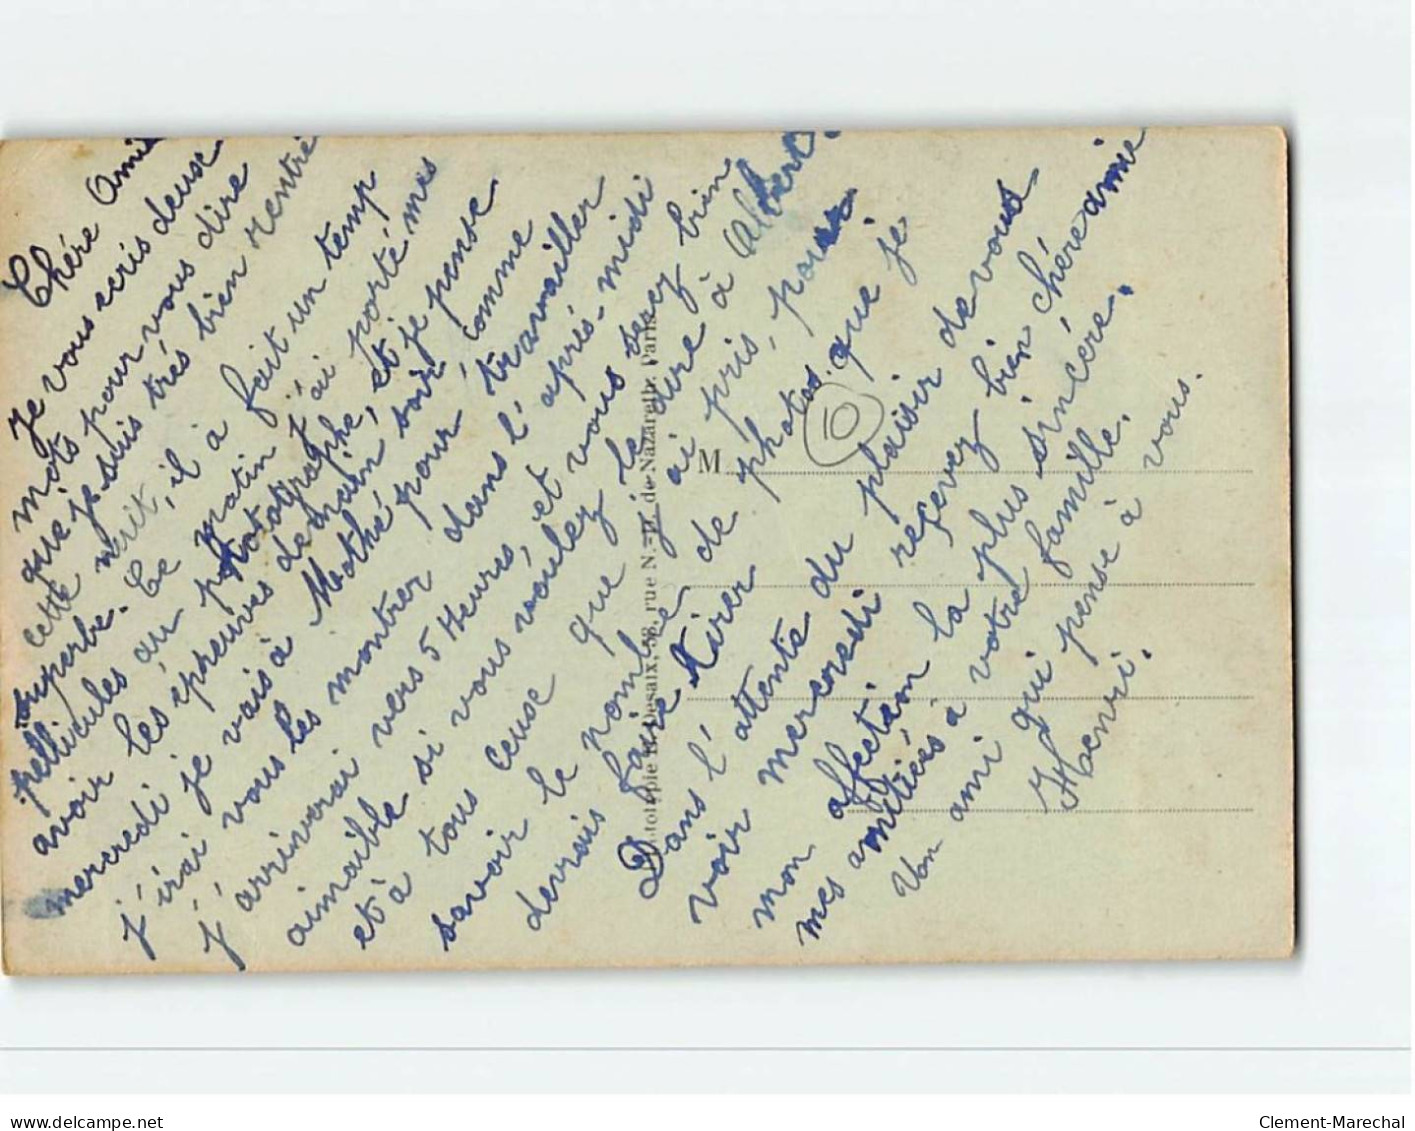 Chére Amie
Je vous ecris deuse
mots pour vous dire
que je suis trés bien rentré
cette nuit, il à fait un temp
superbe. Ce matin j'ai porté mes
pellicules au photographe, et je pense
avoir les épreuves demain soir, comme
mercredi je vais à Mothé pour travailler
j'irai vous les montrer dans l'aprés-midi
j'arriverai vers 5 Heures, et vous serez bien
aimable si vous voulez le dire à Albert,
et à tous ceuse que j'ai pris, pour
savoir le nombre de photos que je
devrais faire tirer
Dans l'attente du plaisir de vous
voir mercredi reçevez bien chére amie
mon affection la plus sincére.
mes amitiés à votre famille.
Von ami qui pense à vous.
Henri.
M
10
Desaix, 58, rue N.-D. de Nazareth, Paris
delcampe.net
Clement-Marechal